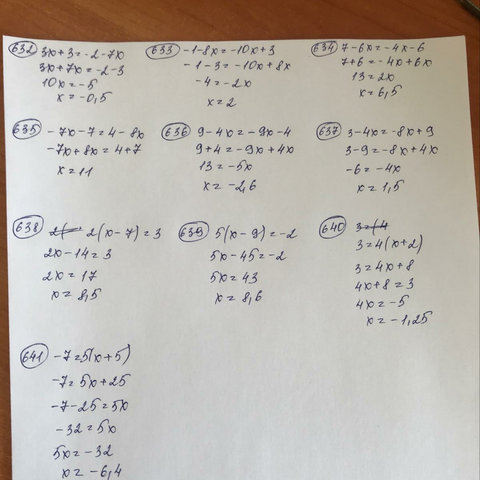 632 3x+3=-2-7x
3x+7x=-2-3
10x=-5
x=-0,5
633 -1-8x=-10x+3
-1-3=-10x+8x
-4=-2x
x=2
634 7-6x=-4x-6
7+6=-4x+6x
13=2x
x=6,5
635 -7x-7=4-8x
-7x+8x=4+7
x=11
636 9-4x=-9x-4
9+4=-9x+4x
13=-5x
x=-2,6
637 3-4x=-8x+9
3-9=-8x+4x
-6=-4x
x=1,5
638 2(x-7)=3
2x-14=3
2x=17
x=8,5
639 5(x-9)=-2
5x-45=-2
5x=43
x=8,6
640
3=4(x+2)
3=4x+8
4x+8=3
4x=-5
x=-1,25
641 -7=5(x+5)
-7=5x+25
-7-25=5x
-32=5x
5x=-32
x=-6,4